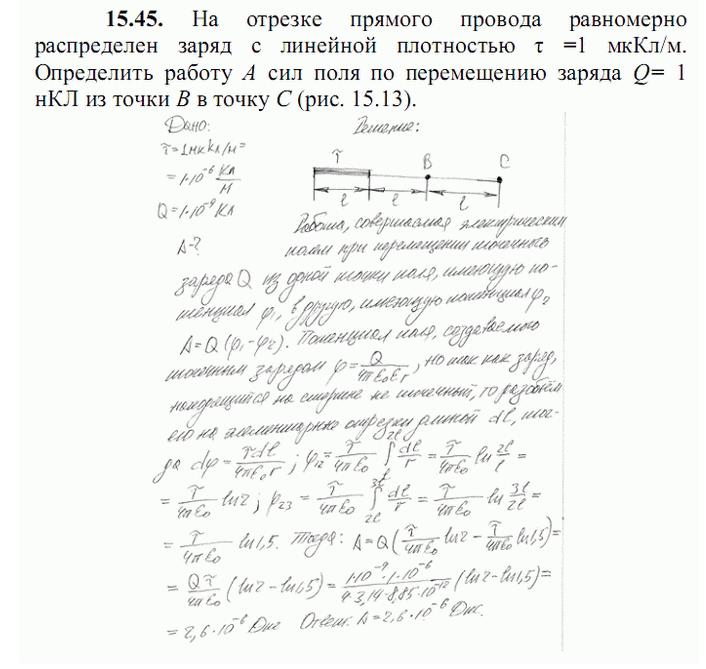 15.45. На отрезке прямого провода равномерно
распределен заряд с линейной плотностью τ =1 мкКл/м.
Определить работу А сил поля по перемещению заряда Q= 1
нКЛ из точки В в точку С (рис. 15.13).
Дано: Решение:
τ=1мккл/м=
=1·10⁻⁶ Кл/м
Q=1·10⁻⁹Кл
A-?
τ B C
l l l
Работа, совершаемая электрическим
полем при перемещении точечного
заряда Q из одной точки поля, имеющую по-
тенциал φ₁, в другую, имеющую потенциал φ₂
A=Q(φ₁-φ₂). Потенциал поля, создаваемого
точечным зарядом φ=Q/4πε₀εr, но так как заряд,
находящийся на стержне не точечный, то разобьём
его на элементарные отрезки длиной dl, тог-
да dφ=τdl/4πε₀r; φ₁₂=τ/4πε₀ ∫ₗ²ˡ dl/r = τ/4πε₀ ln 2l/l =
= τ/4πε₀ ln2; φ₂₃ = τ/4πε₀ ∫₂ₗ³ˡ dl/r = τ/4πε₀ ln 3l/2l =
= τ/4πε₀ ln1,5. Тогда: A=Q(τ/4πε₀ ln2 - τ/4πε₀ ln1,5)=
= Qτ/4πε₀ (ln2-ln1,5)= 1·10⁻⁹·1·10⁻⁶/4·3,14·8,85·10⁻¹² (ln2-ln1,5)=
= 2,6·10⁻⁶ Дж Ответ: A=2,6·10⁻⁶ Дж.